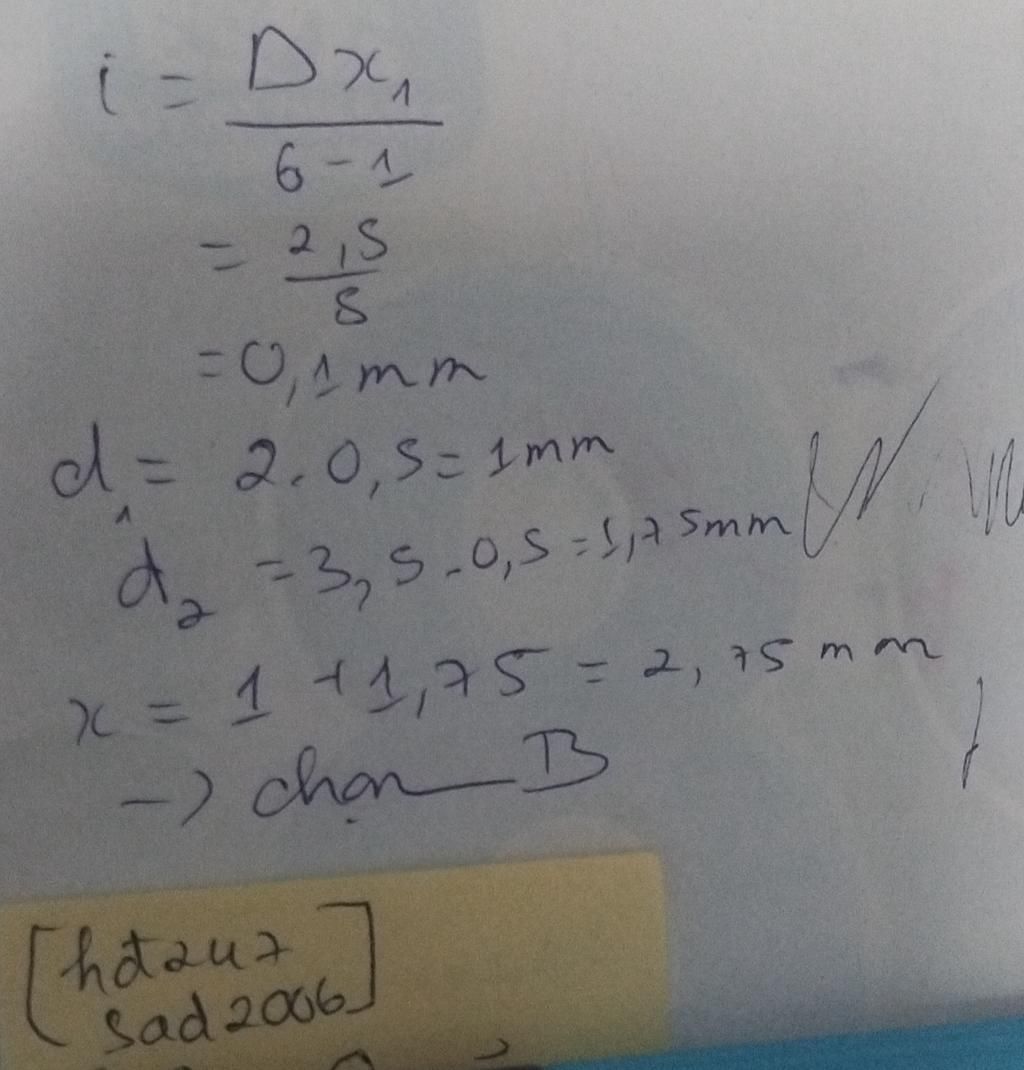 i = Dx₁
6 - 1
= 2,5
5
= 0,1 mm
d₁ = 2.0,5 = 1mm
d₂ = 3,5.0,5 = 1,75mm
x = 1 + 1,75 = 2,75 mm
-> chọn B
[hdt2u7
sad2006]